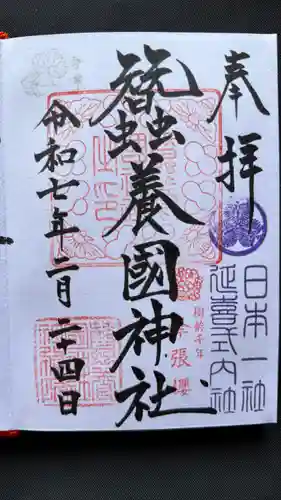 奉拝
日本一社
延喜式内社
蠶養國神社
樹齢千年
峰張櫻
令和七年二月二十四日